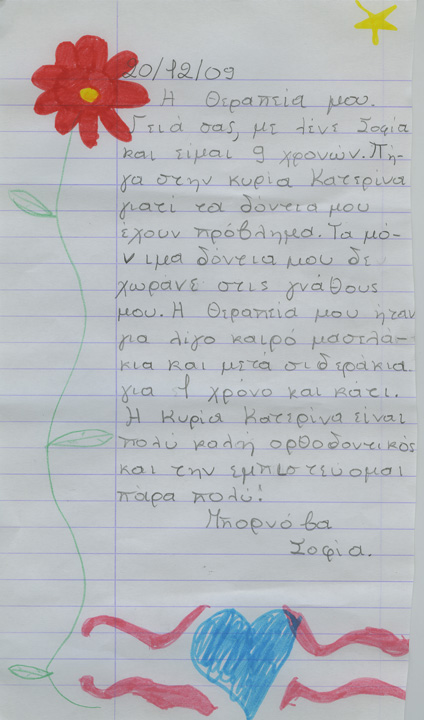 20/12/09
Η Θεραπεία μου.
Γειά σας, με λένε Σοφία
και είμαι 9 χρονών. Πή-
γα στην κυρία Κατερίνα
γιατί τα δόντια μου
έχουν πρόβλημα. Τα μό-
νιμα δόντια μου δε
χωράνε στις γνάθους
μου. Η Θεραπεία μου ήταν
για λίγο καιρό μασελά-
κια και μετά σιδεράκια
για 1 χρόνο και κάτι.
Η Κυρία Κατερίνα είναι
πολύ καλή ορθοδοντικός
και την εμπιστεύομαι
πάρα πολύ!
Μπορνόβα
Σοφία.